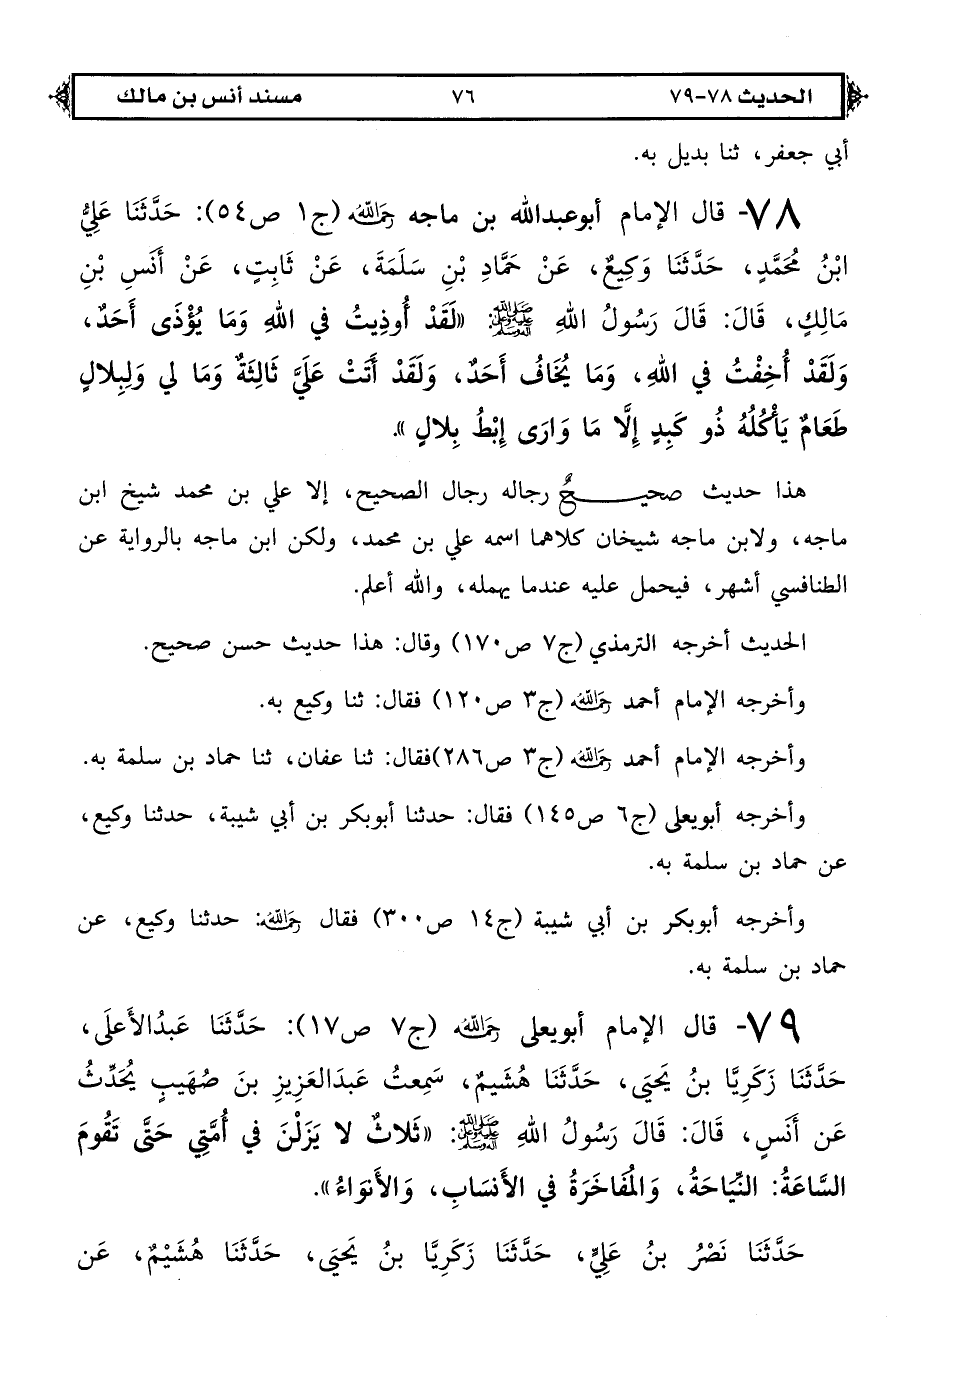 الحديث ٧٨-٧٩ ٧٦ مسند أنس بن مالك
أبي جعفر، ثنا بديل به.
٧٨- قال الإمام أبوعبدالله بن ماجه رَحِمَهُ اللهُ (ج١ ص٥٤): حَدَّثَنَا عَلِيُّ
ابْنُ مُحَمَّدٍ، حَدَّثَنَا وَكِيعٌ، عَنْ حَمَّادِ بْنِ سَلَمَةَ، عَنْ ثَابِتٍ، عَنْ أَنَسِ بْنِ
مَالِكٍ، قَالَ: قَالَ رَسُولُ اللهِ ﷺ: «لَقَدْ أُوذِيتُ فِي اللهِ وَمَا يُؤْذَى أَحَدٌ،
وَلَقَدْ أُخِفْتُ فِي اللهِ، وَمَا يُخَافُ أَحَدٌ، وَلَقَدْ أَتَتْ عَلَيَّ ثَالِثَةٌ وَمَا لِي وَلِبِلالٍ
طَعَامٌ يَأْكُلُهُ ذُو كَبِدٍ إِلَّا مَا وَارَى إِبْطُ بِلالٍ».
هذا حديث صحيـــحٌ رجاله رجال الصحيح، إلا علي بن محمد شيخ ابن
ماجه، ولابن ماجه شيخان كلاهما اسمه علي بن محمد، ولكن ابن ماجه بالرواية عن
الطنافسي أشهر، فيحمل عليه عندما يهمله، والله أعلم.
الحديث أخرجه الترمذي (ج٧ ص١٧٠) وقال: هذا حديث حسن صحيح.
وأخرجه الإمام أحمد رَحِمَهُ اللهُ (ج٣ ص١٢٠) فقال: ثنا وكيع به.
وأخرجه الإمام أحمد رَحِمَهُ اللهُ (ج٣ ص٢٨٦)فقال: ثنا عفان، ثنا حماد بن سلمة به.
وأخرجه أبويعلى (ج٦ ص١٤٥) فقال: حدثنا أبوبكر بن أبي شيبة، حدثنا وكيع،
عن حماد بن سلمة به.
وأخرجه أبوبكر بن أبي شيبة (ج١٤ ص٣٠٠) فقال رَحِمَهُ اللهُ: حدثنا وكيع، عن
حماد بن سلمة به.
٧٩- قال الإمام أبويعلى رَحِمَهُ اللهُ (ج٧ ص١٧): حَدَّثَنَا عَبدُالأَعلَى،
حَدَّثَنَا زَكَرِيَّا بنُ يَحيَى، حَدَّثَنَا هُشَيمٌ، سَمِعتُ عَبدَالعَزِيزِ بنَ صُهَيبٍ يُحَدِّثُ
عَن أَنَسٍ، قَالَ: قَالَ رَسُولُ اللهِ ﷺ: «ثَلاثٌ لا يَزَلْنَ فِي أُمَّتِي حَتَّى تَقُومَ
السَّاعَةُ: النِّيَاحَةُ، وَالمُفَاخَرَةُ فِي الأَنسَابِ، وَالأَنوَاءُ».
حَدَّثَنَا نَصْرُ بنُ عَلِيٍّ، حَدَّثَنَا زَكَرِيَّا بنُ يَحيَى، حَدَّثَنَا هُشَيْمٌ، عَن